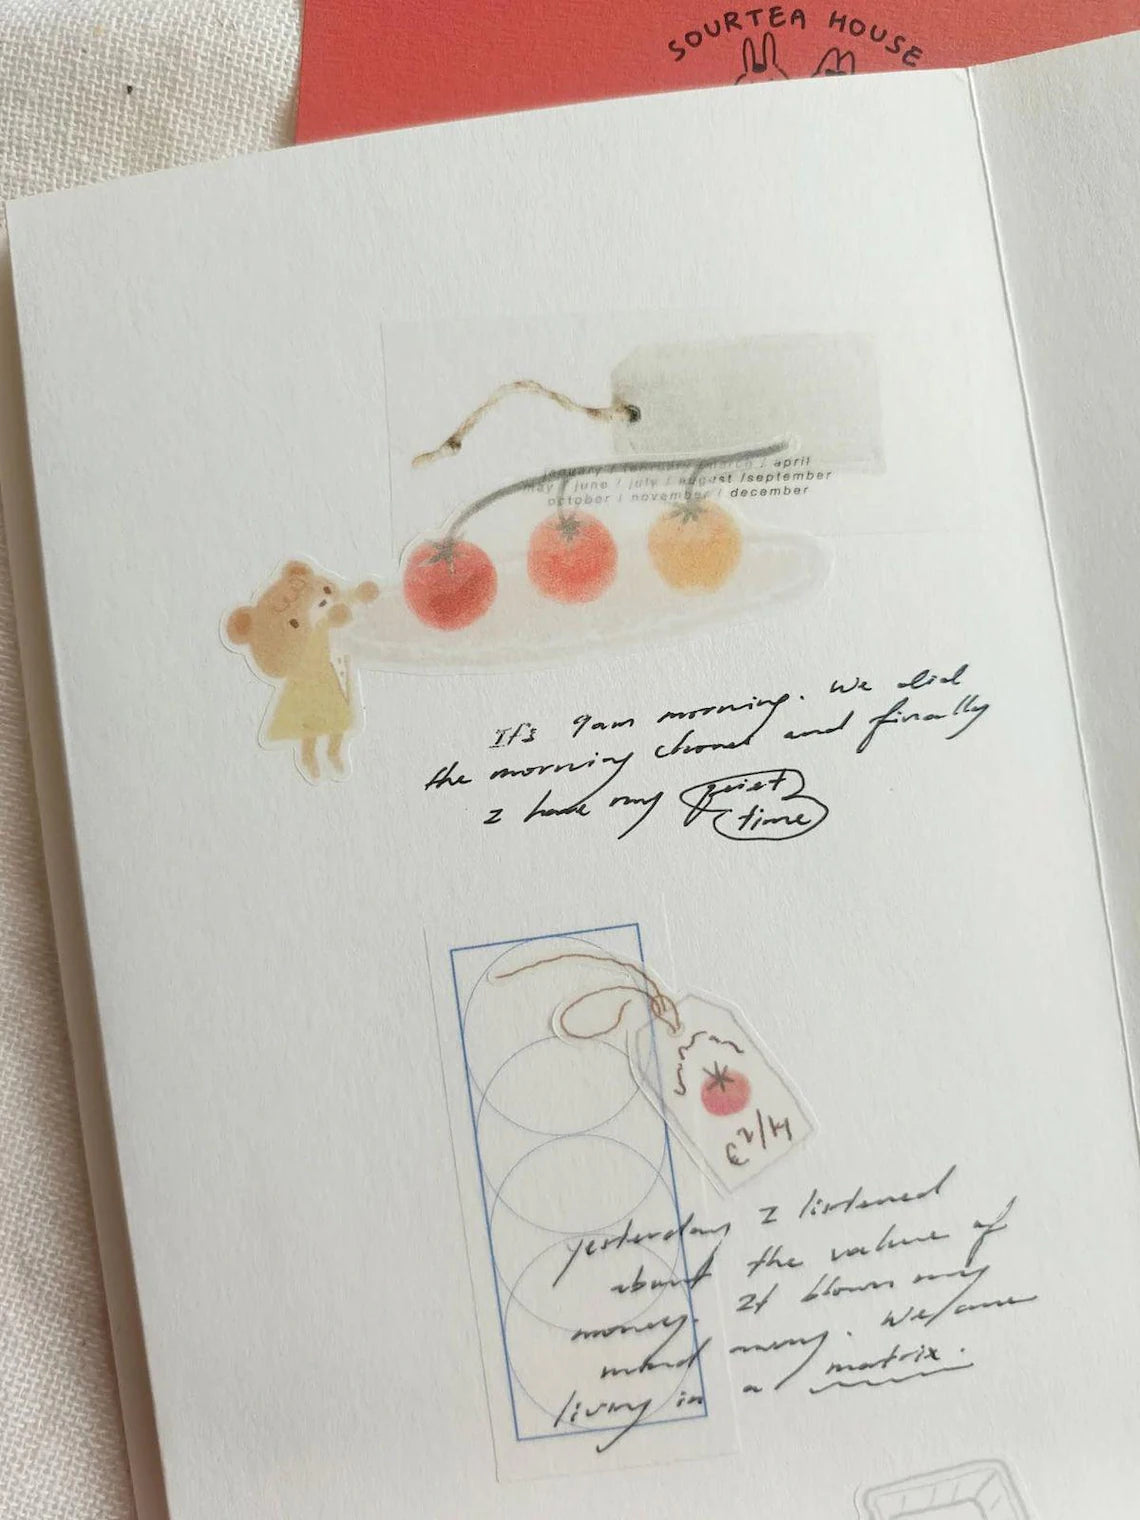 SOURTEA HOUSE
january / february / march / april
may / june / july / august /september
october / november / december
It's 9am morning. We did
the morning and finally
I have my quiet
time
€2/H
yesterday I listened
about the value of
money. It blown my
mind away. We are
living in a matrix.